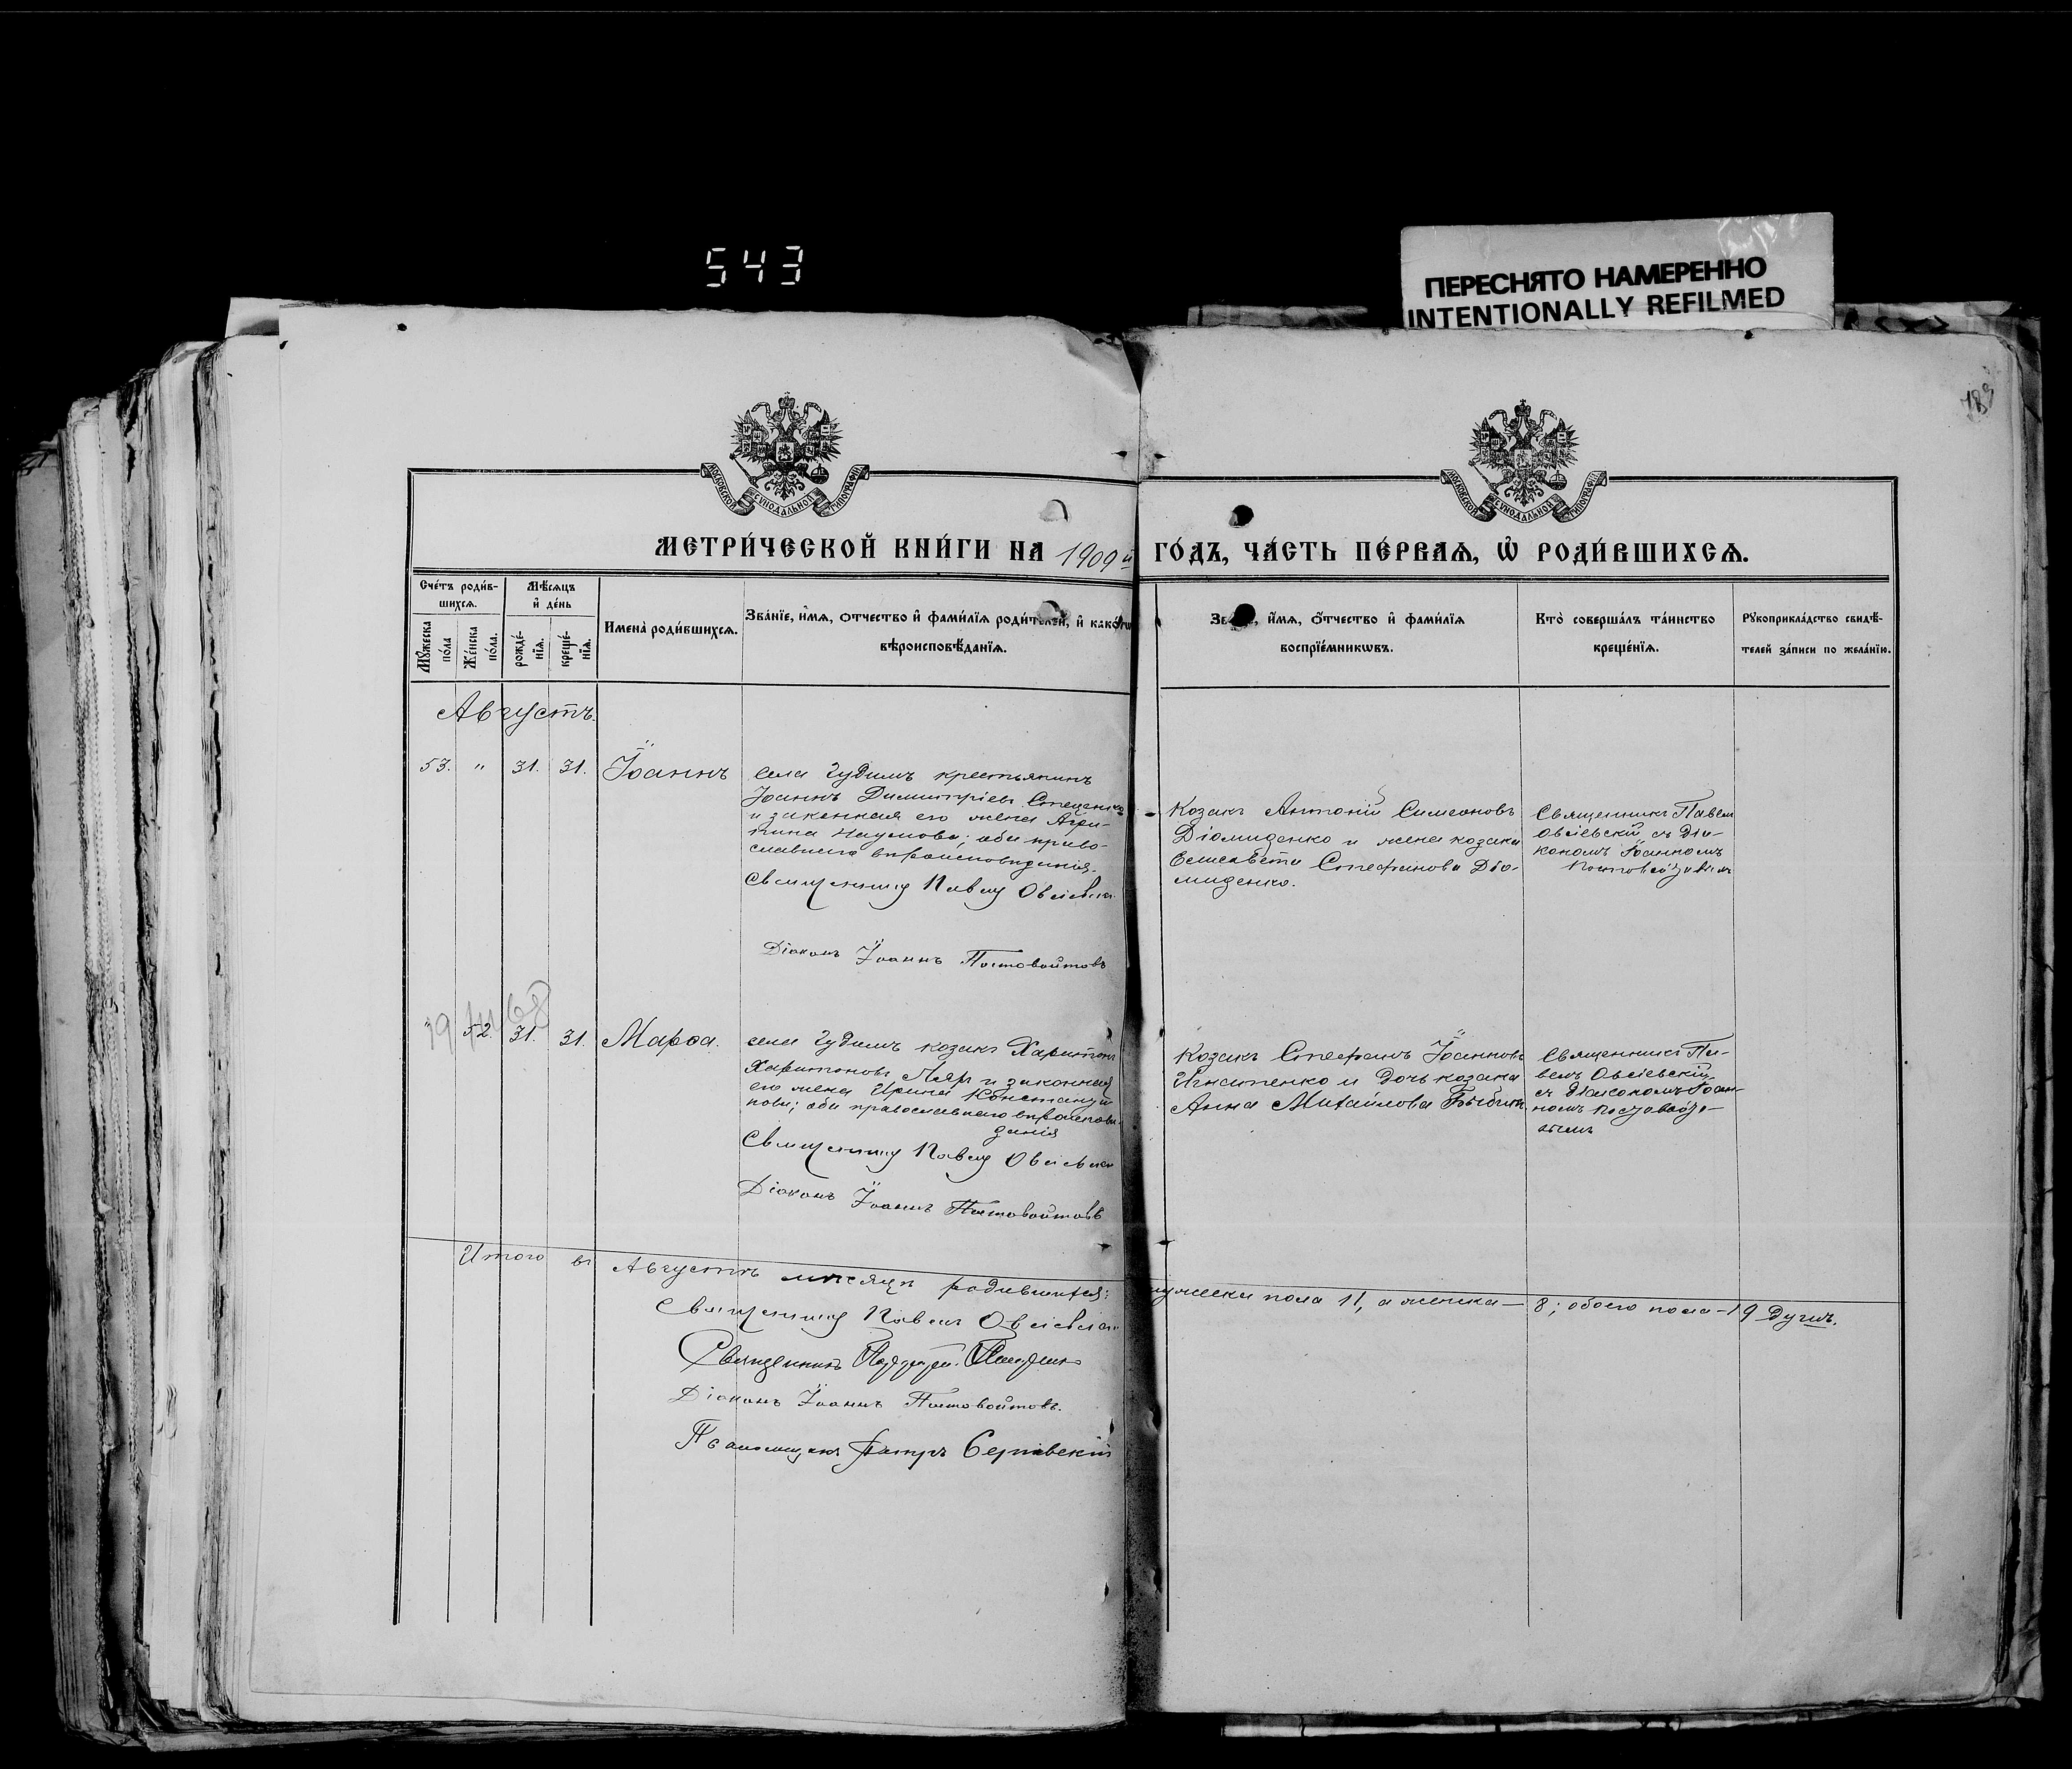 543
ПЕРЕСНЯТО НАМЕРЕННО
INTENTIONALLY REFILMED
МОСКОВСКОЙ СѴНОДАЛЬНОЙ ТИПОГРАФІИ
МОСКОВСКОЙ СѴНОДАЛЬНОЙ ТИПОГРАФІИ
МЕТРИ́ЧЕСКОЙ КНИ́ГИ НА 1909 й ГО́ДЪ, ЧА́СТЬ ПЕ́РВАѦ, Ѡ҆ РОДИ́ВШИХСѦ.
Сче́тъ роди́в-
шихсѧ.
Мѣ́сѧцъ
и҆ де́нь
Мꙋ́жеска
по́ла
Же́нска
по́ла.
рожде́-
нїѧ.
креще́-
нїѧ.
Имена̀ роди́вшихсѧ.
Зва́нїе, и҆́мѧ, ѻтчество и҆ фами́лїѧ роди́телей, и҆ како́гѡ
вѣроисповѣ́данїѧ.
Зва́нїе, и҆́мѧ, ѻ҆́тчество и҆ фами́лїѧ
воспрїе́мникѡвъ.
Кто̀ соверша́лъ та́инство
креще́нїѧ.
Рꙋкоприкла́дство свидѣ́-
телей за́писи по жела́нїю.
Августъ.
53. " 31. 31. Іоаннъ
села Гудимъ крестьянинъ
Іоаннъ Димитріевъ
и законная его жена Агри-
пина Наумова; оба право-
славнаго вѣроисповѣданія.
Священникъ Павелъ Овсіевскій
Діаконъ Іоаннъ Постовойтовъ
Козакъ Антоній Симеоновъ
Діомиденко и жена козака
Елисавета Стефанова Діо-
миденко.
Священникъ Павелъ
Овсіевскій съ Діа-
кономъ Іоанномъ
Постовойтовымъ
" 52. 31. 31. Марѳа.
села Гудимъ козакъ Харитонъ
Харитоновъ Ляхъ и законная
его жена Ирина Константи-
нова; оба православнаго вѣроисповѣ-
данія
Священникъ Павелъ Овсіевскій
Діаконъ Іоаннъ Постовойтовъ
Козакъ Стефанъ Іоанновъ
Игнатенко и дочь козака
Анна Михайлова
Священникъ Па-
велъ Овсіевскій
съ Діакономъ Іоан-
номъ Постовойто-
вымъ
Итого въ Августѣ мѣсяцѣ родившихся: мужеска пола 11, а женска — 8; обоего пола — 19 душъ.
Священникъ Павелъ Овсіевскій
Священникъ
Діаконъ Іоаннъ Постовойтовъ.
Псаломщикъ Петръ Сергіевскій